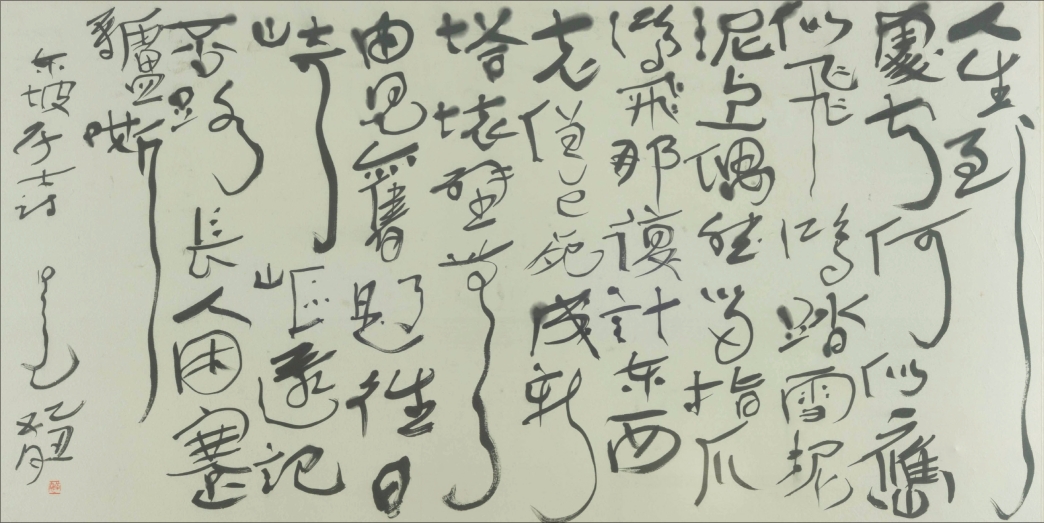 人生到
處知何似應
似飛鴻踏雪泥
泥上偶然留指爪
鴻飛那復計东西
老僧已死成新
塔壞壁無
由見舊題往日
崎嶇還記
否路長人困蹇
驢嘶
东坡居士诗